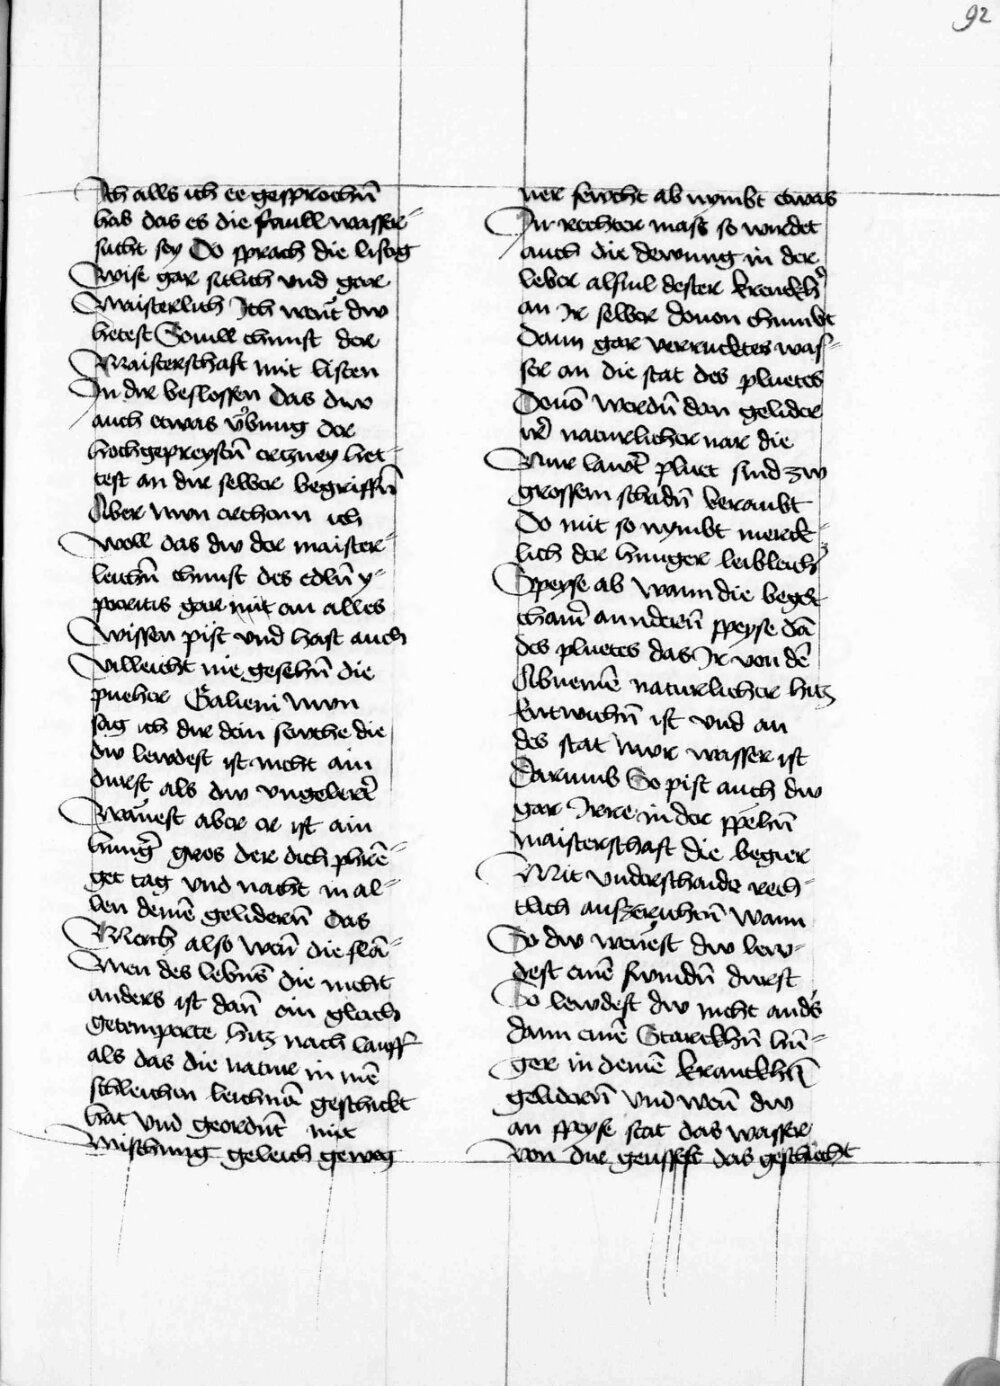 92
Ich alls ich ee gesprochn̄
hab das es die faull wasser-
sucht sey Do sprach die listig
Wise gar sitlich und gar
Maisterlich Ich wen̄t diw
hetest Souill chunst der
Maisterschaft mit listen
In dir beslossen Das diw
auch etwas v̈bung der
hochgepreystn̄ erczney het-
test an dir selber begriffn̄
Aber nun erchenn ich
woll das diw der maister-
leichn̄ chunst des edln̄ y-
pocritis gar mit an alles
Wissen pist vnd hast auch
Villeicht nie gesehn̄ die
pueher Galieni Nun
sag ich dir dein sewche die
diw lewdest ist nicht ain
durst als diw vngelert̄
Wänest aber er ist ain
hunḡ gros der dich phrē-
get tag vnd nacht in al-
len demē gelidern̄ das
Merck also wen̄ die flā-
Men des lebns̄ die nicht
anders ist dan̄ ein gleich
getemperte hitz nach lauff
als das die natur in mē
schleichen leichnā geschickt
hat vnd geordn̄t mit
Mischung geleich gewog
ner fewcht ab nymbt etwas
In rechter mass so wirdet
auch die dewung in der
leber alsuil dester krenckh̄
an Ir selber douon chumbt
Dann gar verrucktes was-
ser an die stat des pluetes
Douō werdn̄ dan gelider
ir̄ naturlicher nar die
Nur lawt̄ pluet sind zw
grossem schadn̄ beraubt
Do mit so nymbt merck-
lich der hunger leibleich̄
Speyse ab wann die beget
cham̄ anndern̄ speyse dā
des pluetes das Ir von dē
Abnemē naturlicher hitz
Entwichn̄ ist vnd an
des stat Nur wasser ist
Darumb So pist auch diw
gar Irre in der speln̄
maisterschaft die begier
Mit vnderschaide rech-
tlich ausszerichn̄ wann
So diw wenest diw lew-
dest einē swindn̄ durst
So lewdest diw nicht and̄s
dann einē Starckhn̄ hū-
ger in demē kranckhn̄
gelidern̄ Vnd wen̄ diw
an speyse stat das wasser
Von dir geusset das geschiecht